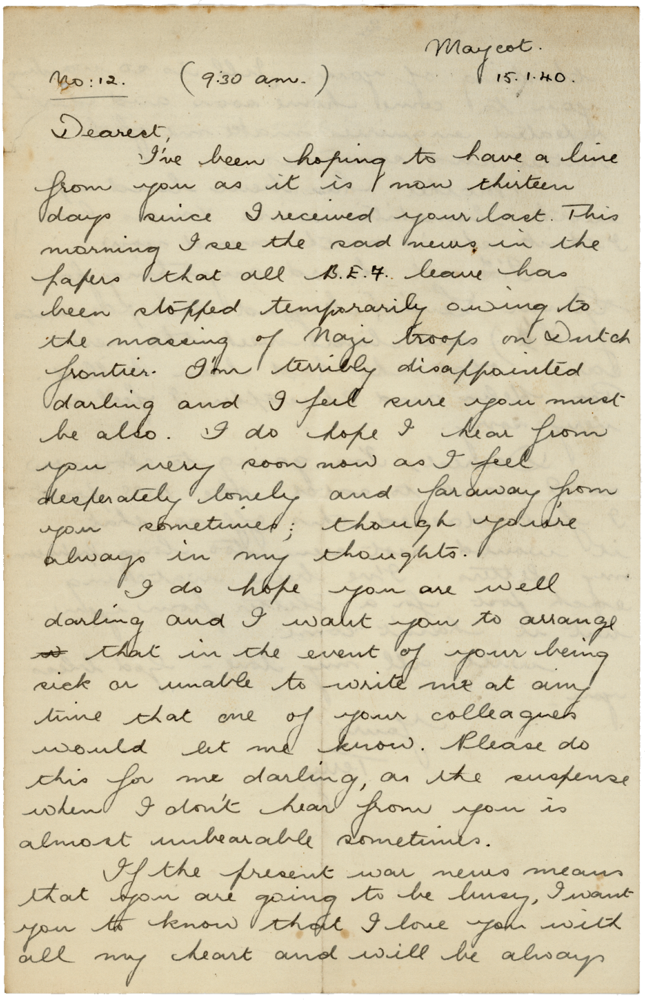 Maycot.
No: 12. (9.30 am.) 15.1.40.
Dearest,
I've been hoping to have a line
from you as it is now thirteen
days since I received your last. This
morning I see the sad news in the
papers that all B.E.F. leave has
been stopped temporarily owing to
the massing of Nazi troops on Dutch
frontier. I'm terribly disappointed
darling and I feel sure you must
be also. I do hope I hear from
you very soon now as I feel
desperately lonely and faraway from
you sometimes; though you're
always in my thoughts.
I do hope you are well
darling and I want you to arrange
that in the event of your being
sick or unable to write me at any
time that one of your colleagues
would let me know. Please do
this for me darling, as the suspense
when I don't hear from you is
almost unbearable sometimes.
If the present war news means
that you are going to be busy, I want
you to know that I love you with
all my heart and will be always